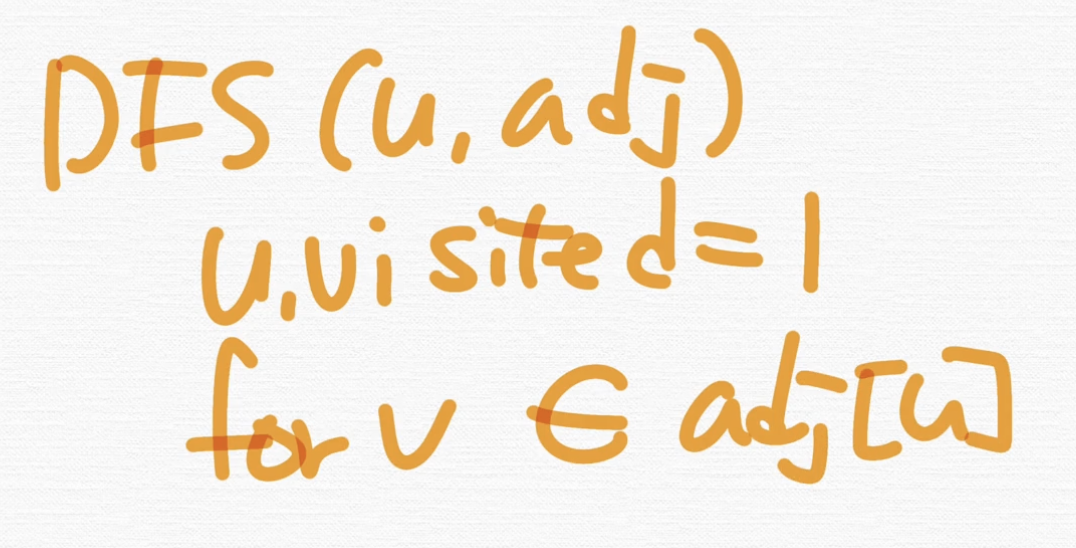 DFS (u, adj)
u.visited = 1
for v ∈ adj[u]